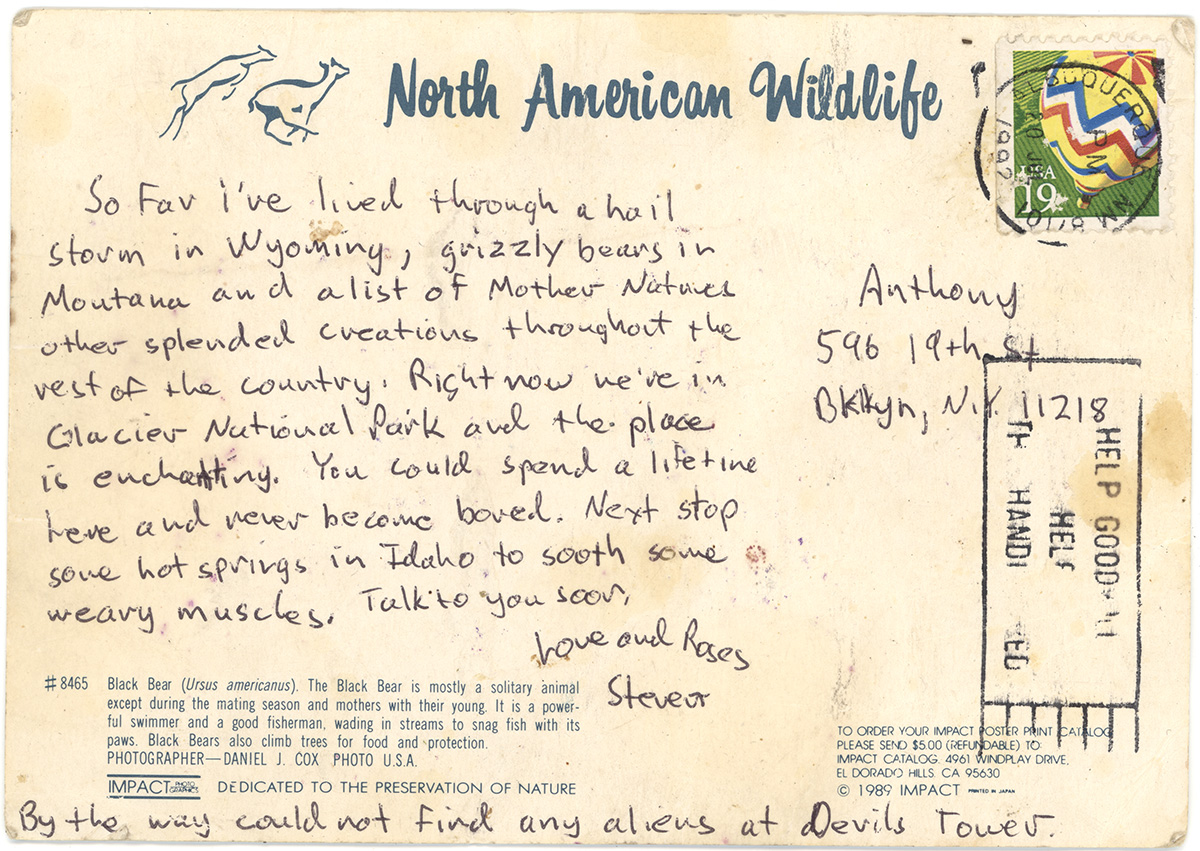 North American Wildlife
So Far I've lived through a hail
storm in Wyoming, grizzly bears in
Montana and a list of Mother Natures
other splended creations throughout the
rest of the country. Right now we're in
Glacier National Park and the place
is enchanting. You could spend a lifetime
here and never become bored. Next stop
some hot springs in Idaho to sooth some
weary muscles. Talk to you soon,
Love and Roses
Steven
USA
19
ALBUQUERQUE NM
PM
1992
871
Anthony
596 19th St
Bklyn, N.Y. 11218
HELP GOODWILL
HELP
TH HANDI ED
#8465 Black Bear (Ursus americanus). The Black Bear is mostly a solitary animal
except during the mating season and mothers with their young. It is a power-
ful swimmer and a good fisherman, wading in streams to snag fish with its
paws. Black Bears also climb trees for food and protection.
PHOTOGRAPHER—DANIEL J. COX PHOTO U.S.A.
IMPACT PHOTO GRAPHICS DEDICATED TO THE PRESERVATION OF NATURE
TO ORDER YOUR IMPACT POSTER PRINT CATALOG
PLEASE SEND $5.00 (REFUNDABLE) TO:
IMPACT CATALOG, 4961 WINDPLAY DRIVE,
EL DORADO HILLS, CA 95630
© 1989 IMPACT PRINTED IN JAPAN
By the way could not find any aliens at Devils Tower.